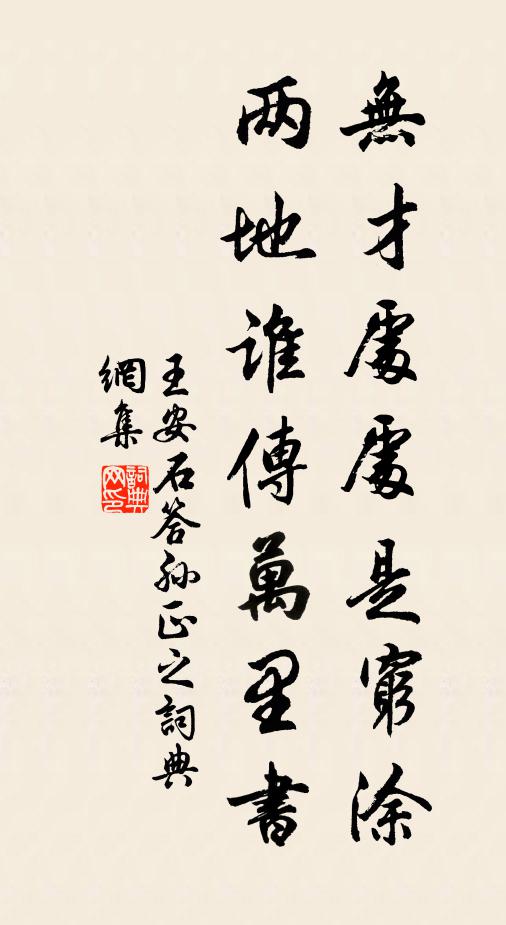 無才處處是窮涂
两地誰傳萬里書
王安石答孙正之詞典
網集
詞典网印